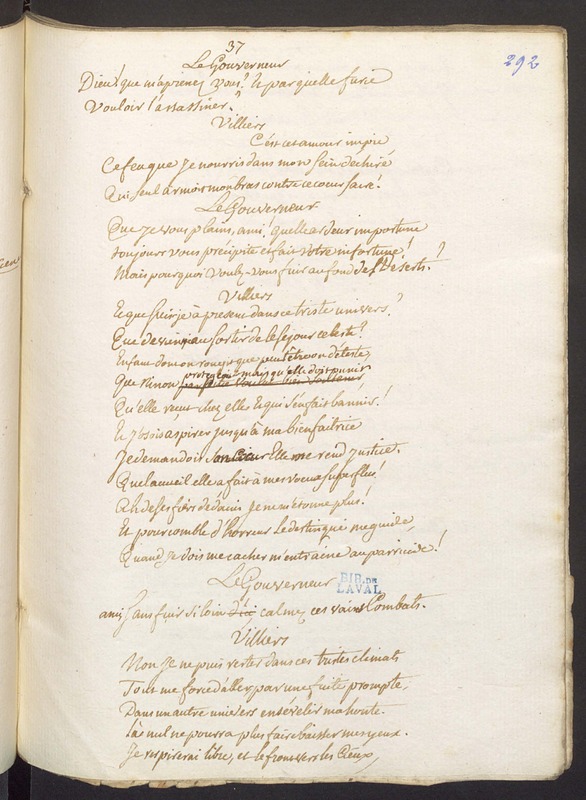 37
292
Le Gouverneur
Dieu! que m'aprenez vous? et par quelle furie
Vouloir l'assassiner?
Villiers
C'est cet amour impie
Ce feu que je nourris dans mon sein dechiré
Qui seul armoit mon bras contre ce coeur sacré!
Le Gouverneur
Que je vous plains, ami! quelle ardeur importune
toujours vous précipite et fait votre infortune!
Mais pourquoi voulez-vous fuir au fond des déserts?
Villiers
Et que ferai-je à present dans ce triste univers?
Que devenir au sortir de le séjour celeste?
Enfant dont on rougit que peut être on déteste,
Que Ninon protegeoit mais qu'elle doit punir
Qu'elle veut chez elle Et qui s'en fait bannir!
Et j'osois aspirer jusqu'à ma bienfaitrice
Je demandois son coeur Elle me rend justice.
Quel accueil elle a fait à mes voeux superflus!
Ah de ses fiers dédains je ne m'étonne plus!
Et pour comble d'horreur le destin qui me guide,
Quand je dois me cacher m'entraine au parricide!
Le Gouverneur
BIB. DE
LAVAL
ami sans fuir si loin d'ici calmez ces vains Combats.
Villiers
Non je ne puis rester dans ces tristes climats
Tout me force d'aller par une fuite prompte,
Dans un autre univers ensévelir ma honte.
Là nul ne pourra plus faire baisser mes yeux.
Je respirerai libre, et le front vers les Cieux,